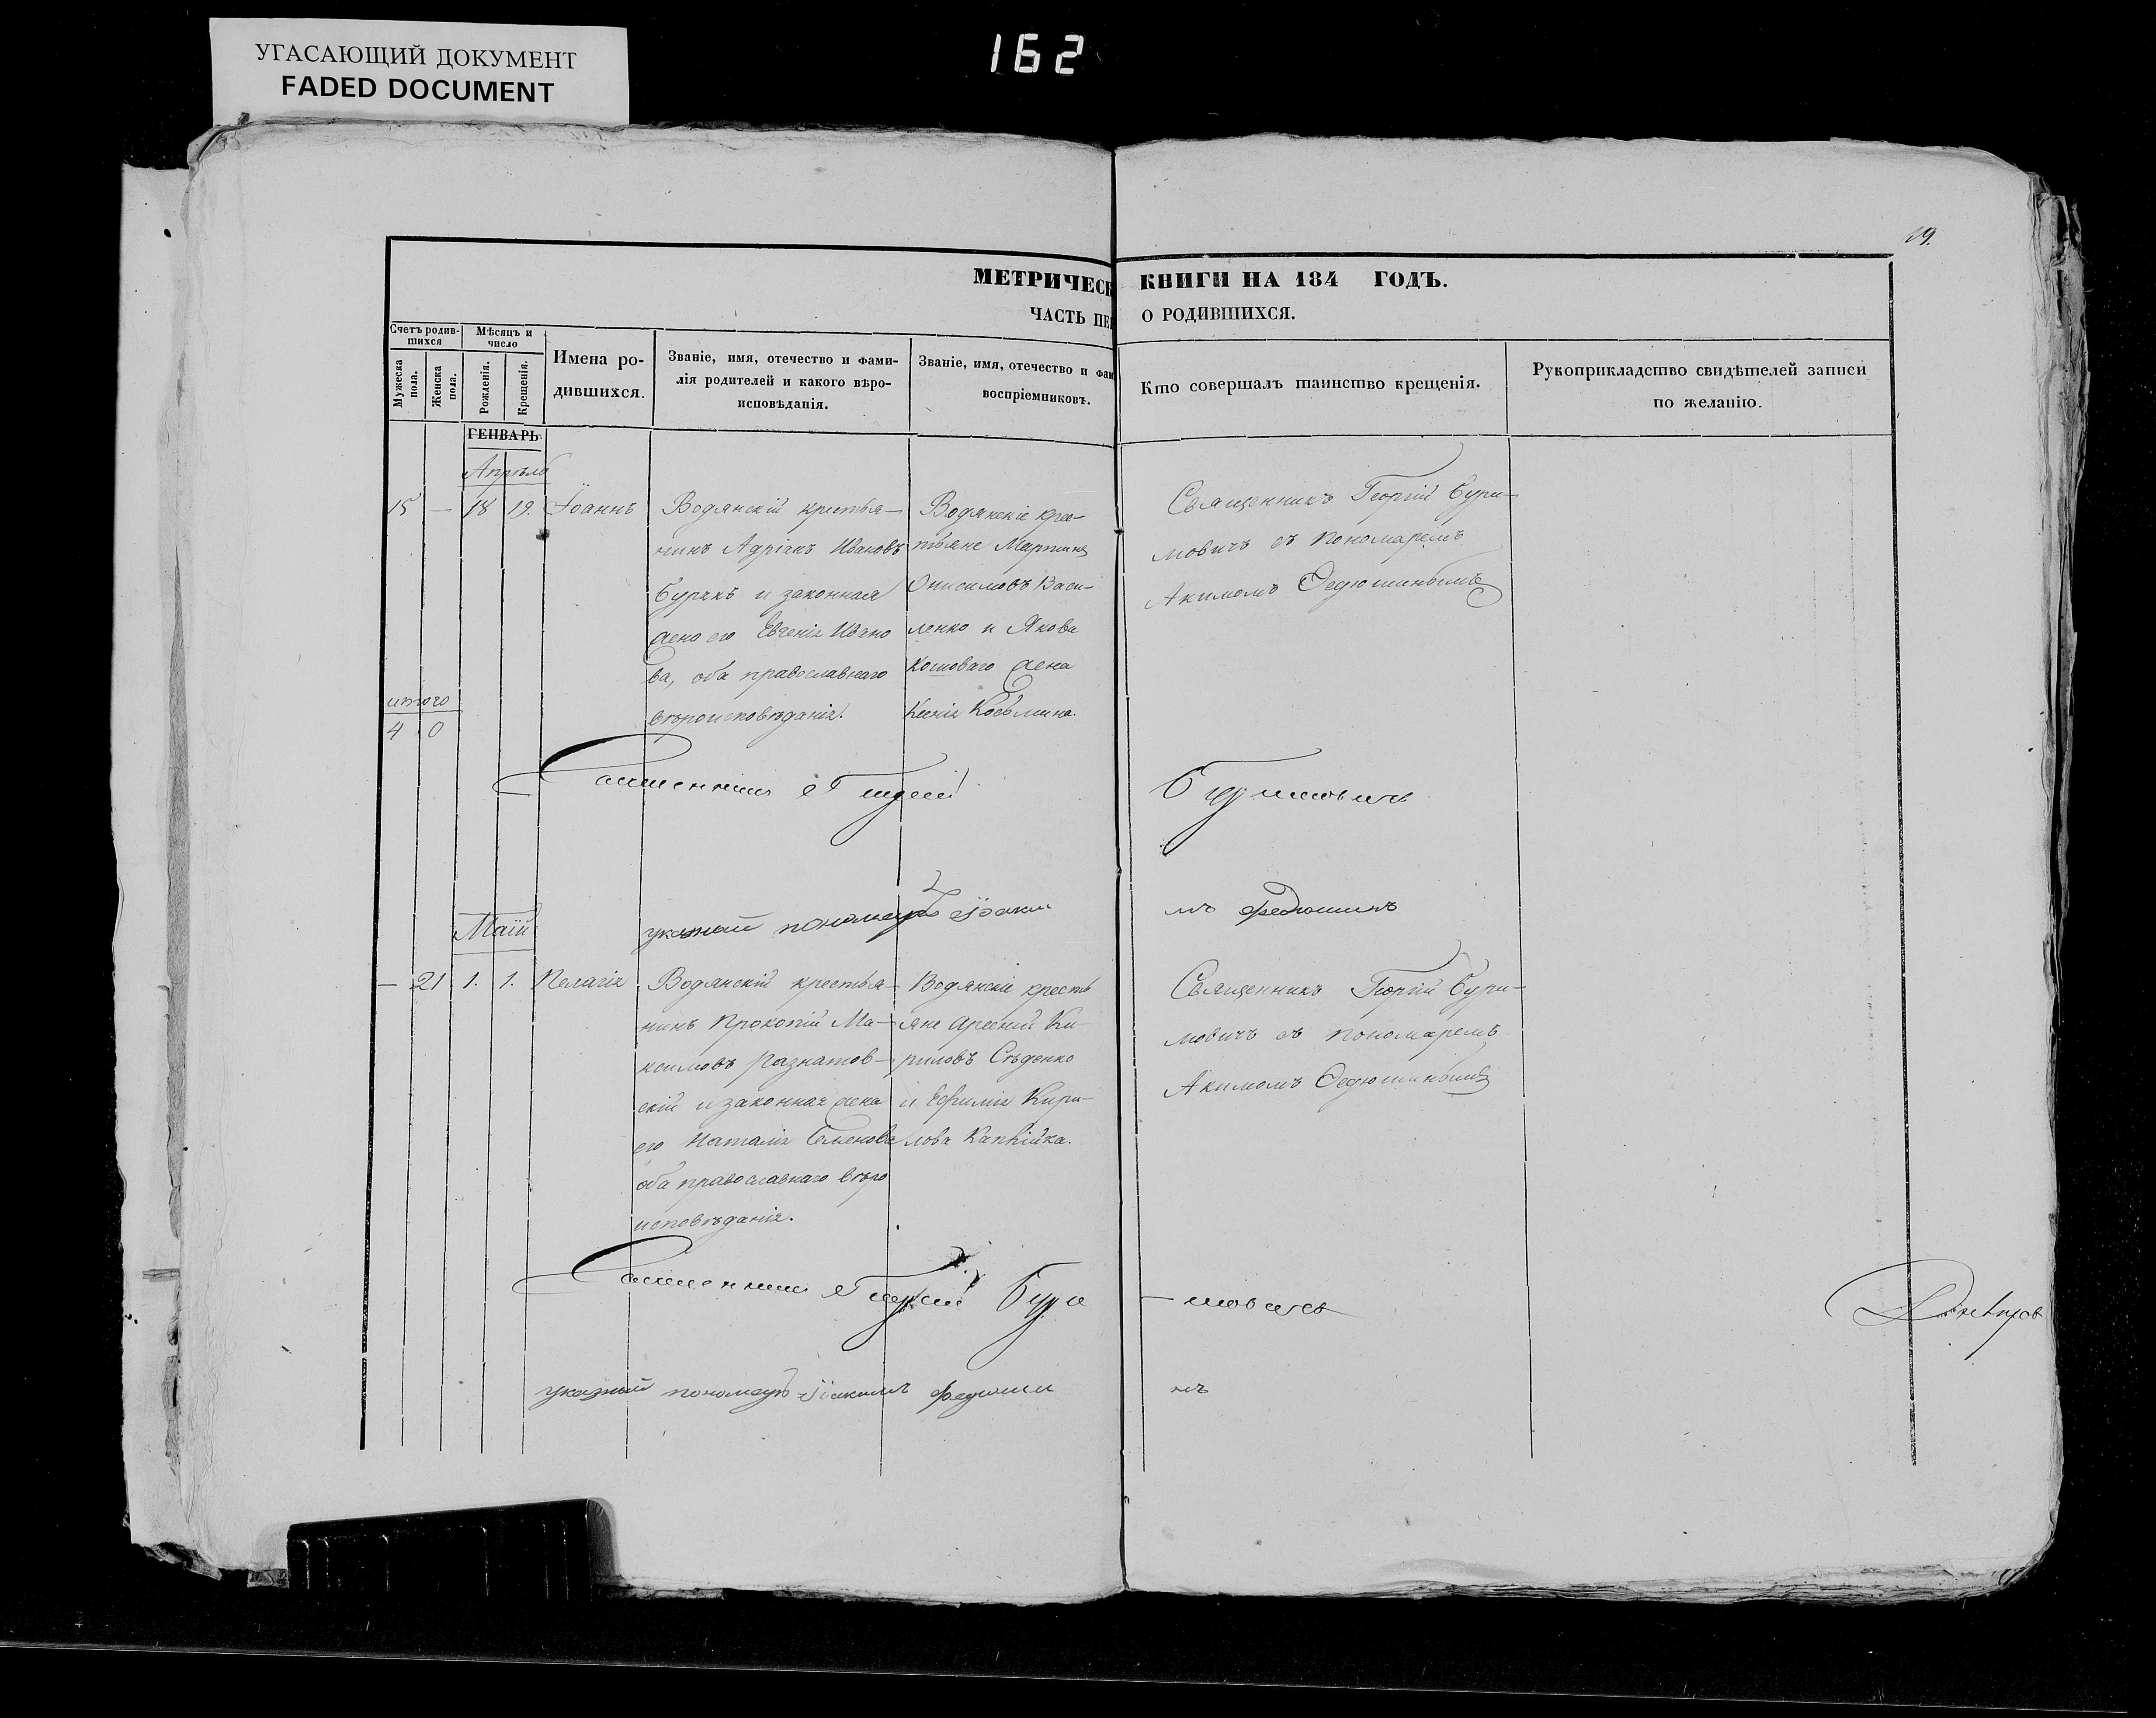 УГАСАЮЩИЙ ДОКУМЕНТ
FADED DOCUMENT
162
19.
МЕТРИЧЕСК КНИГИ НА 184 ГОДЪ.
ЧАСТЬ ПЕР О РОДИВШИХСЯ.
Счетъ родив-
шихся
Мужеска
пола.
Женска
пола.
Мѣсяцъ и
число
Рожденія.
Крещенія.
Имена ро-
дившихся.
Званіе, имя, отечество и фами-
лія родителей и какого вѣро-
исповѣданія.
Званіе, имя, отечество и фам
воспріемниковъ.
Кто совершалъ таинство крещенія.
Рукоприкладство свидѣтелей записи
по желанію.
ГЕНВАРЬ.
Апрѣль
15 — 18 19. Іоаннъ
Водянскій крестья-
нинъ Адріанъ Ивановъ
Бурякъ и законная
жена его Евгенія Ивано
ва, оба православнаго
вѣроисповѣданія.
Водянскіе крес-
тьяне Мартинъ
Онисимовъ Васи-
ленко и Якова
Кошоваго жена
Ксенія Козьмина.
Священникъ Георгій Бури-
мовичъ съ пономаремъ
Акимомъ Федюшинымъ
итого
4 0
Священникъ Георгій Буримовичъ
указный пономарь Іоакимъ Федюшинъ
Маій
— 21 1. 1. Пелагія
Водянскій крестья-
нинъ Прокопій Ма-
ксимовъ Разнатов-
скій и законная жена
его Наталія Семенова
оба православнаго вѣро
исповѣданія.
Водянскіе кресть
яне Арсеній Ки-
риловъ Сѣденко
и Ефимія Кири-
лова
Священникъ Георгій Бури-
мовичъ съ пономаремъ
Акимомъ Федюшинымъ
Священникъ Георгій Бури-мовичъ
указный пономарь Іоакимъ Федюшинъ